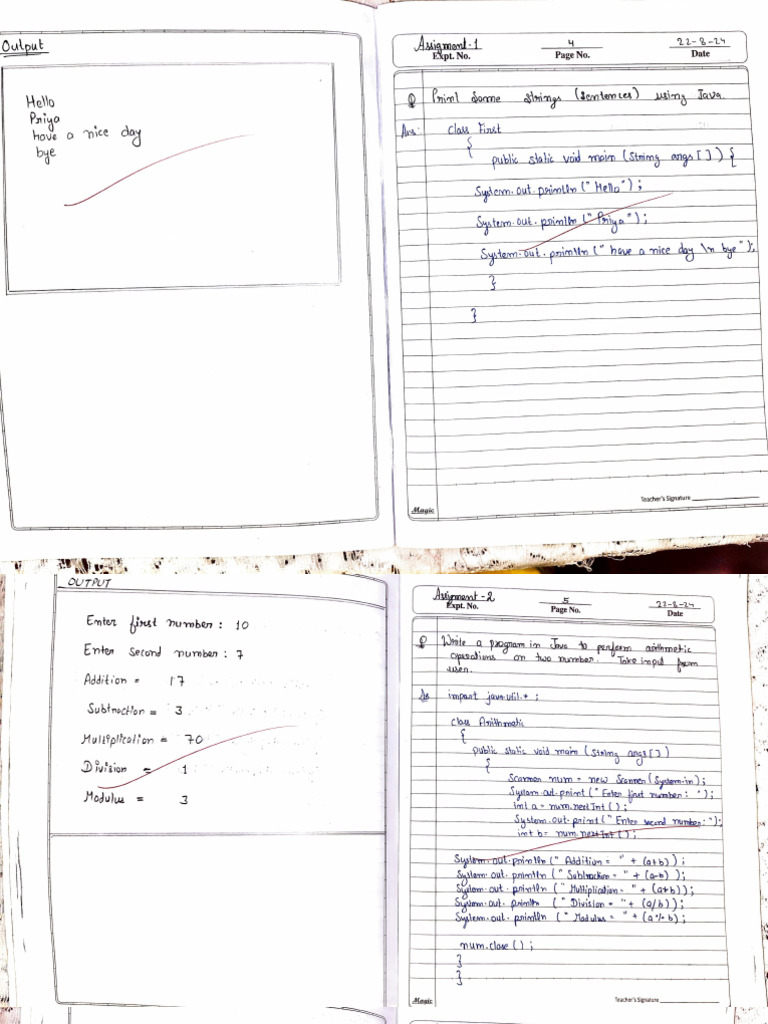 Output
Hello
Priya
have a nice day
bye
Assigment-1 4 22-8-24
Expt. No. Page No. Date
Q Print Some Strings (Sentences) using Java.
Ans: class First
{
public static void main (String args [ ] ) {
System.out.println (" Hello ") ;
System.out.println (" Priya ") ;
System.out.println (" have a nice day \n bye ");
}
}
Teacher's Signature
Magic
OUTPUT
Enter first number : 10
Enter second number : 7
Addition = 17
Subtraction = 3
Multiplication = 70
Division = 1
Modulus = 3
Assigment -2 5 22-8-24
Expt. No. Page No. Date
Q Write a program in Java to perform arithmetic
operations on two number. Take input from
user.
As import java.util.* ;
class Arithmatic
{
public static void main (String args[ ])
{
Scanner num = new Scanner (System.in);
System.out.print (" Enter first number : ");
int a = num.nextInt ( );
System.out.print (" Enter second number: ");
int b = num.nextInt ( );
System.out.println (" Addition = " + (a+b) ) ;
System.out.println (" Subtraction = " + (a-b) );
System.out.println (" Multiplication = " + (a*b) );
System.out.println (" Division = " + (a/b) );
System.out.println (" Modulus = " + (a % b) ;
num.close ( ) ;
}
}
Teacher's Signature
Magic